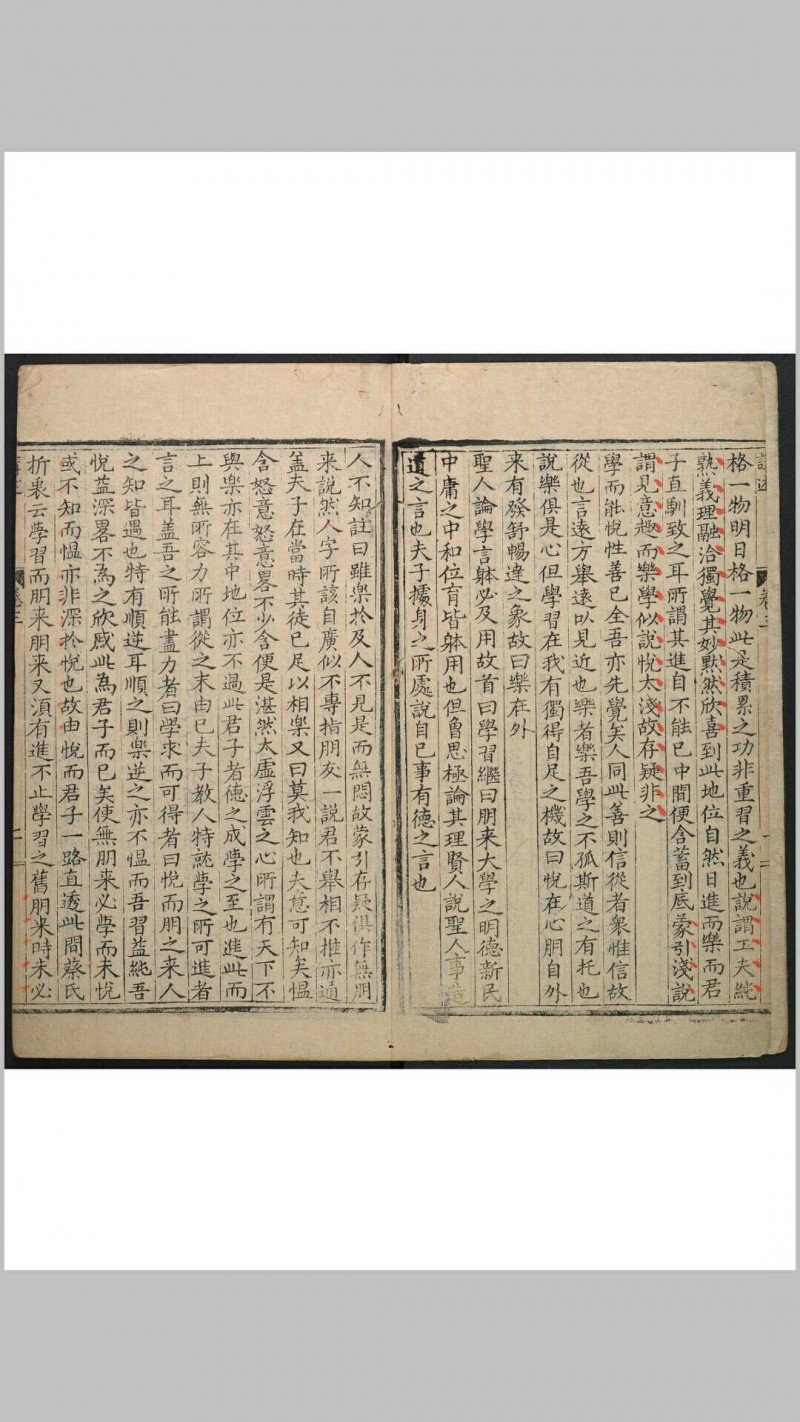 格一物明日格一物此是積累之功非重習之義也說謂工夫純
熟義理融洽獨覺其妙黙然欣喜到此地位自然日進而樂而君
子直馴致之耳所謂其進自不能已中間便含蓄到底蒙引淺說
謂見意趣而樂學似說悅太淺故存疑非之
學而能悅性善已全吾亦先覺矣人同此善則信從者衆惟信故
從也言遠方舉遠以見近也樂者樂吾學之不孤斯道之有托也
說樂俱是心但學習在我有獨得自足之機故曰悅在心朋自外
來有發舒暢達之象故曰樂在外
聖人論學言躰必及用故首曰學習繼曰朋來大學之明德新民
中庸之中和位育皆躰用也但曾思極論其理賢人說聖人事造
道之言也夫子據身之所處說自已事有德之言也
人不知註曰雖樂扵及人不見是而無悶故蒙引存疑俱作無朋
来說然人字所該自廣似不專指朋友一說君不舉相不推亦通
盖夫子在當時其徒已足以相樂又曰莫我知也夫意可知矣愠
含怒意怒意畧不少含便是湛然太虛浮雲之心所謂有天下不
與樂亦在其中地位亦不過此君子者德之成學之至也進此而
上則無所容力所謂從之末由已夫子教人特就學之所可進者
言之耳盖吾之所能盡力者曰學求而可得者曰悅而朋之来人
之知皆遇也特有順逆耳順之則樂逆之亦不愠而吾習益純吾
悅益深畧不為之欣慼此為君子而已矣使無朋来必學而未悅
或不知而愠亦非深扵悅也故由悅而君子一路直透此間蔡氏
折衷云學習而朋来朋来又須有進不止學習之舊朋来時未必
卷三